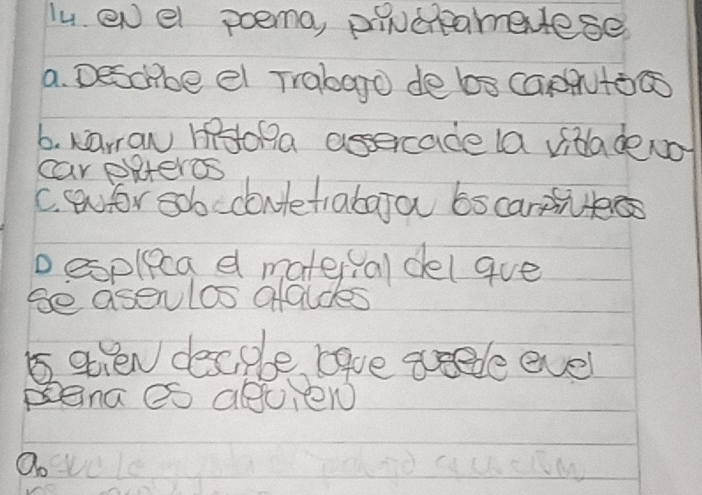 14. en el poema, principalmentese
a. Describe el Trabago de los carpinteros
b. Narran historia assercade la vida de no
carpinteros
c. donte trabaja los carpinteros
D esplica el material del que
se asen los ataudes
15 quien describe loque susede enel
poema es alguien
a.